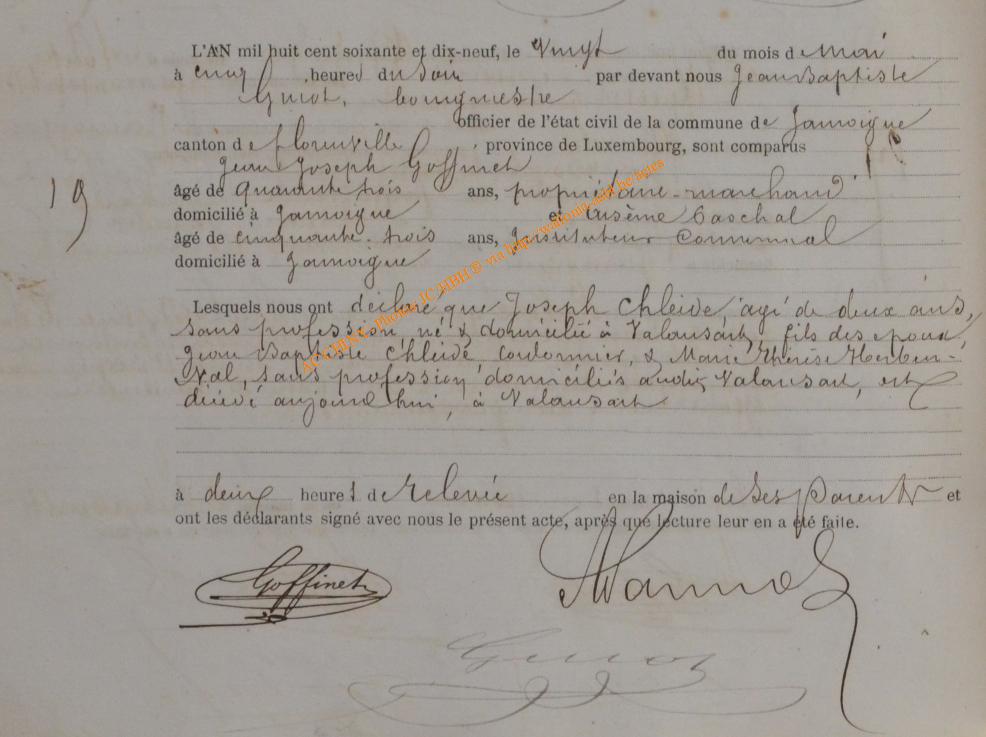 L'AN mil huit cent soixante et dix-neuf, le Vingt du mois de Mai
à cinq heures du Soir par devant nous Jean Baptiste
Guiot, bourgmestre
officier de l'état civil de la commune de Jamoigne
canton de florenville, province de Luxembourg, sont comparus
Jean Joseph Goffinet
19
âgé de Quarante trois ans, propriétaire-marchand
domicilié à Jamoigne et Arsème
âgé de cinquante-trois ans, Instituteur Communal
domicilié à Jamoigne
Lesquels nous ont déclaré que Joseph Chleide agé de deux ans,
sans profession né & domicilié à Valansart, fils des époux
Jean Baptiste Chleide cordonnier, & Marie Thérèse
sans profession domiciliés audit Valansart, est
décédé aujourd'hui, à Valansart
à deux heures de Relevée en la maison de ses Parents et
ont les déclarants signé avec nous le présent acte, après que lecture leur en a été faite.
Goffinet
Guiot